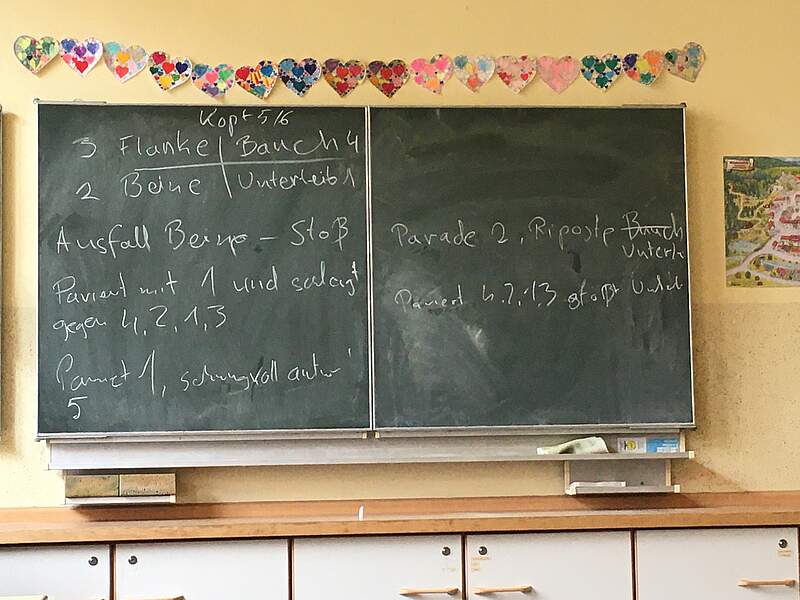 Kopf 5/6
3 Flanke | Bauch 4
2 Beine | Unterleib 1
Ausfall Beine – Stoß
Pariert mit 1 und schlägt
gegen 4, 2, 1, 3
Pariert 1, schwungvoll antw
5
Parade 2, Riposte Bauch
Unterl
Pariert 4, 2, 1, 3 stößt